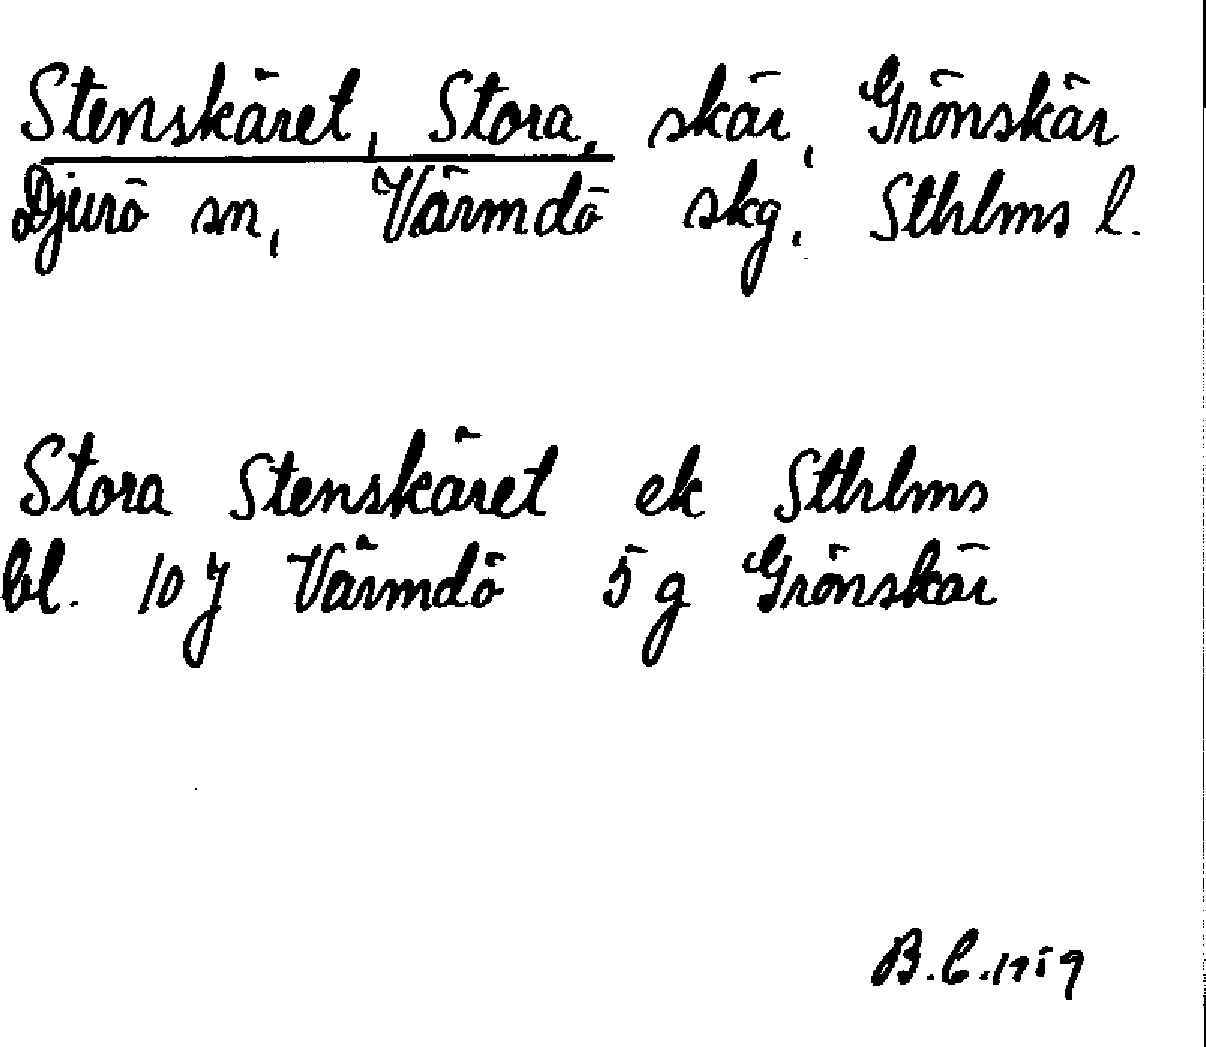 Stenskäret, Stora, skär, Grönskär
Djurö sn, Värmdö skg, Sthlms l.
Stora Stenskäret ek Sthlms
bl. 10 J Värmdö 5 g Grönskär
B.C.1959